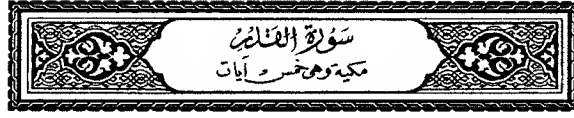 سورة القدر
مكية وهي خمس آيات